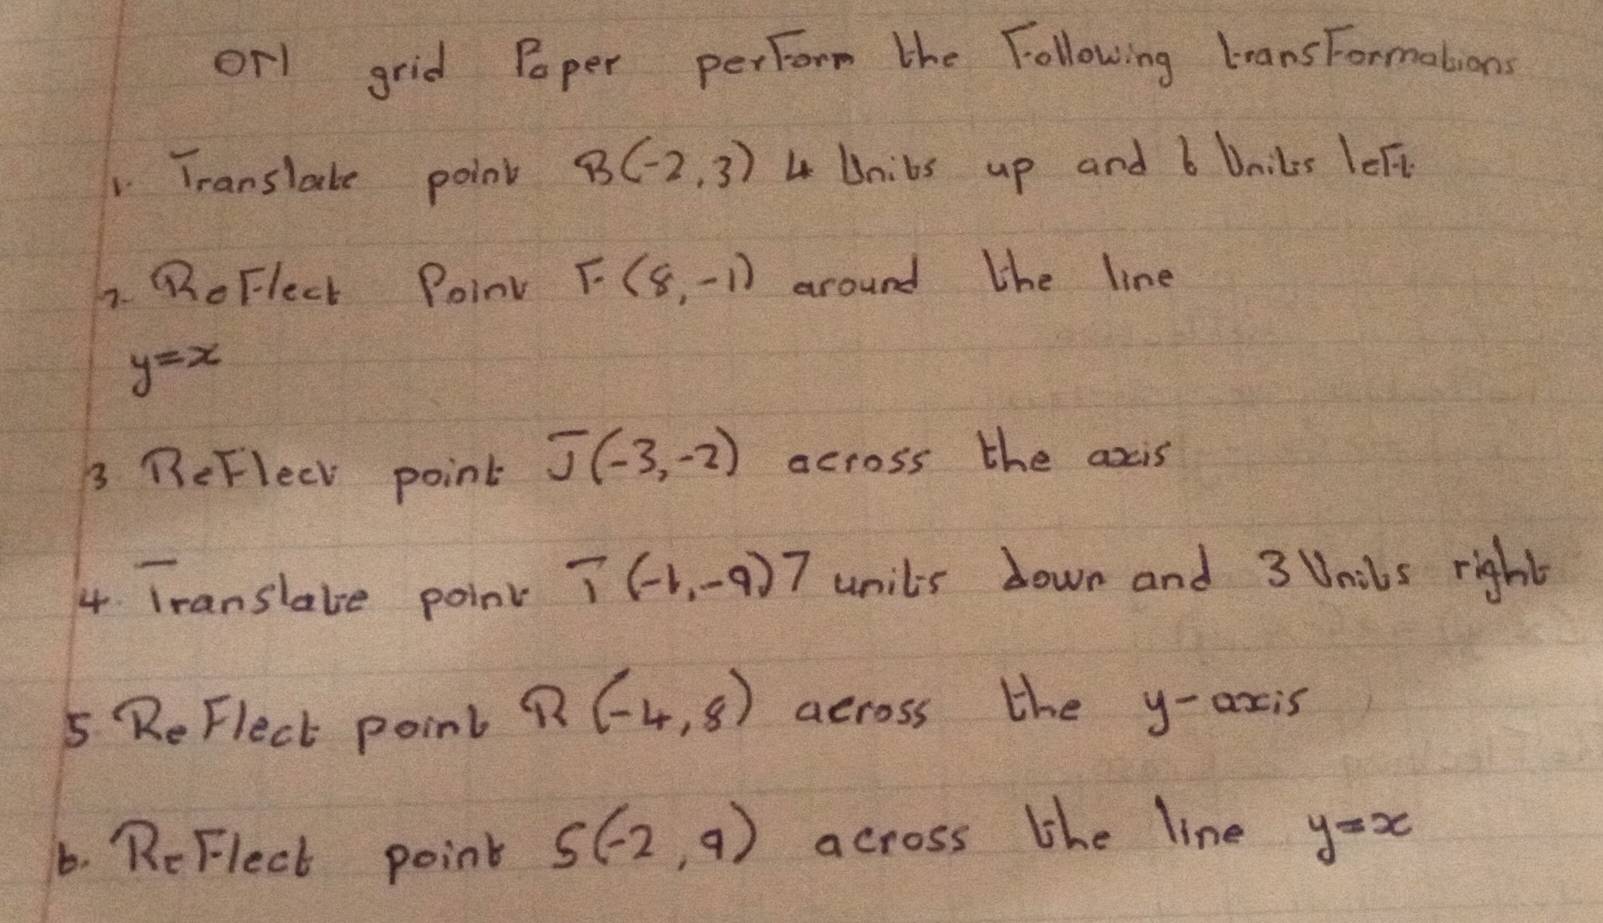 ON grid Paper perform the Following transFormations
1. Translate point B(-2,3) 4 Units up and 6 Units left
2. Reflect Point F(8,-1) around the line
y=x
3 Reflect point J(-3,-2) across the axis
4. Translate point T(-1,-9) 7 units down and 3 Units right
5 Reflect point R(-4,8) across the y-axis
6. Reflect point S(-2,9) across the line y=x